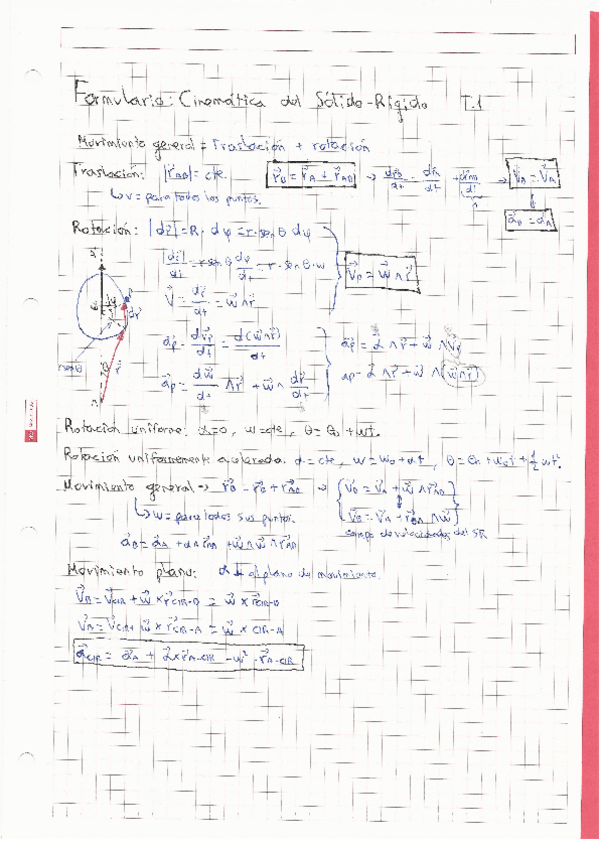 Formulario: Cinemática del Sólido-Rígido T.1
Movimiento general = Traslación + rotación
Traslación: |r⃗AB| = cte. r⃗B = r⃗A + r⃗AB → dr⃗B/dt = dr⃗A/dt + dr⃗AB/dt → v⃗B = v⃗A
↳ v = para todos los puntos. a⃗B = a⃗A
Rotación: |dr⃗| = R · dφ = r · sen θ dφ
|dr⃗|/dt = r · sen θ dφ/dt = r · sen θ · w
v⃗ = dr⃗/dt = w⃗ ∧ r⃗
v⃗p = w⃗ ∧ r⃗
a⃗p = dv⃗p/dt = d(w⃗∧r⃗)/dt
a⃗p = α⃗ ∧ r⃗ + w⃗ ∧ v⃗p
a⃗p = dw⃗/dt ∧ r⃗ + w⃗ ∧ dr⃗/dt
ap = α⃗ ∧ r⃗ + w⃗ ∧ (w⃗∧r⃗)
Rotación uniforme: α=0, w=cte, θ = θ0 + wt.
Rotación uniformemente acelerada. α = cte, w = w0 + αt,
Movimiento general → r⃗B = r⃗A + r⃗AB → v⃗B = v⃗A + w⃗ ∧ r⃗AB
↳ w = para todos sus puntos. v⃗B = v⃗A - r⃗BA ∧ w⃗
campo de velocidades del SR
a⃗B = a⃗A + α ∧ r⃗AB + w⃗ ∧ w⃗ ∧ r⃗AB
Movimiento plano: α⃗ ⊥ al plano de movimiento.
v⃗B = v⃗CIR + w⃗ × r⃗CIR-B = w⃗ × r⃗CIR-B
v⃗A = v⃗CIR + w⃗ × r⃗CIR-A = w⃗ × CIR-A
a⃗CIR = a⃗A + α⃗ × r⃗A-CIR - w² · r⃗A-CIR